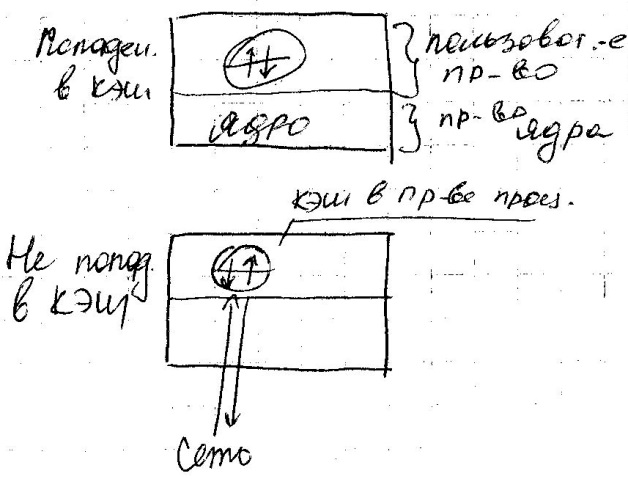 Попадан.
в кэш
пользоват.-е
пр-во
ядро
пр-во
ядра
кэш в пр-ве проц.
Не попад.
в кэш
Сеть